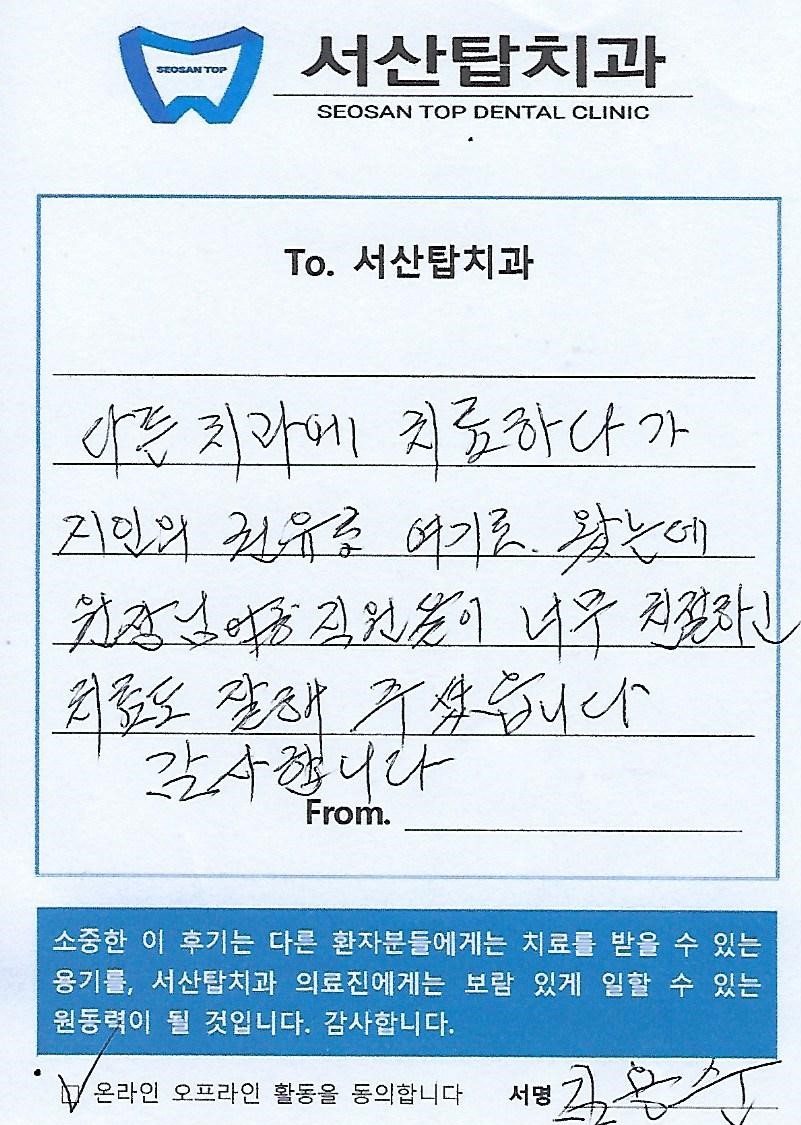 SEOSAN TOP
서산탑치과
SEOSAN TOP DENTAL CLINIC
To. 서산탑치과
다른 치과에 치료하다가
지인의 권유로 여기로 왔는데
원장님 직원분이 너무 친절하고
치료도 잘해 주셨습니다
감사합니다
From.
소중한 이 후기는 다른 환자분들에게는 치료를 받을 수 있는
용기를, 서산탑치과 의료진에게는 보람 있게 일할 수 있는
원동력이 될 것입니다. 감사합니다.
온라인 오프라인 활동을 동의합니다 서명